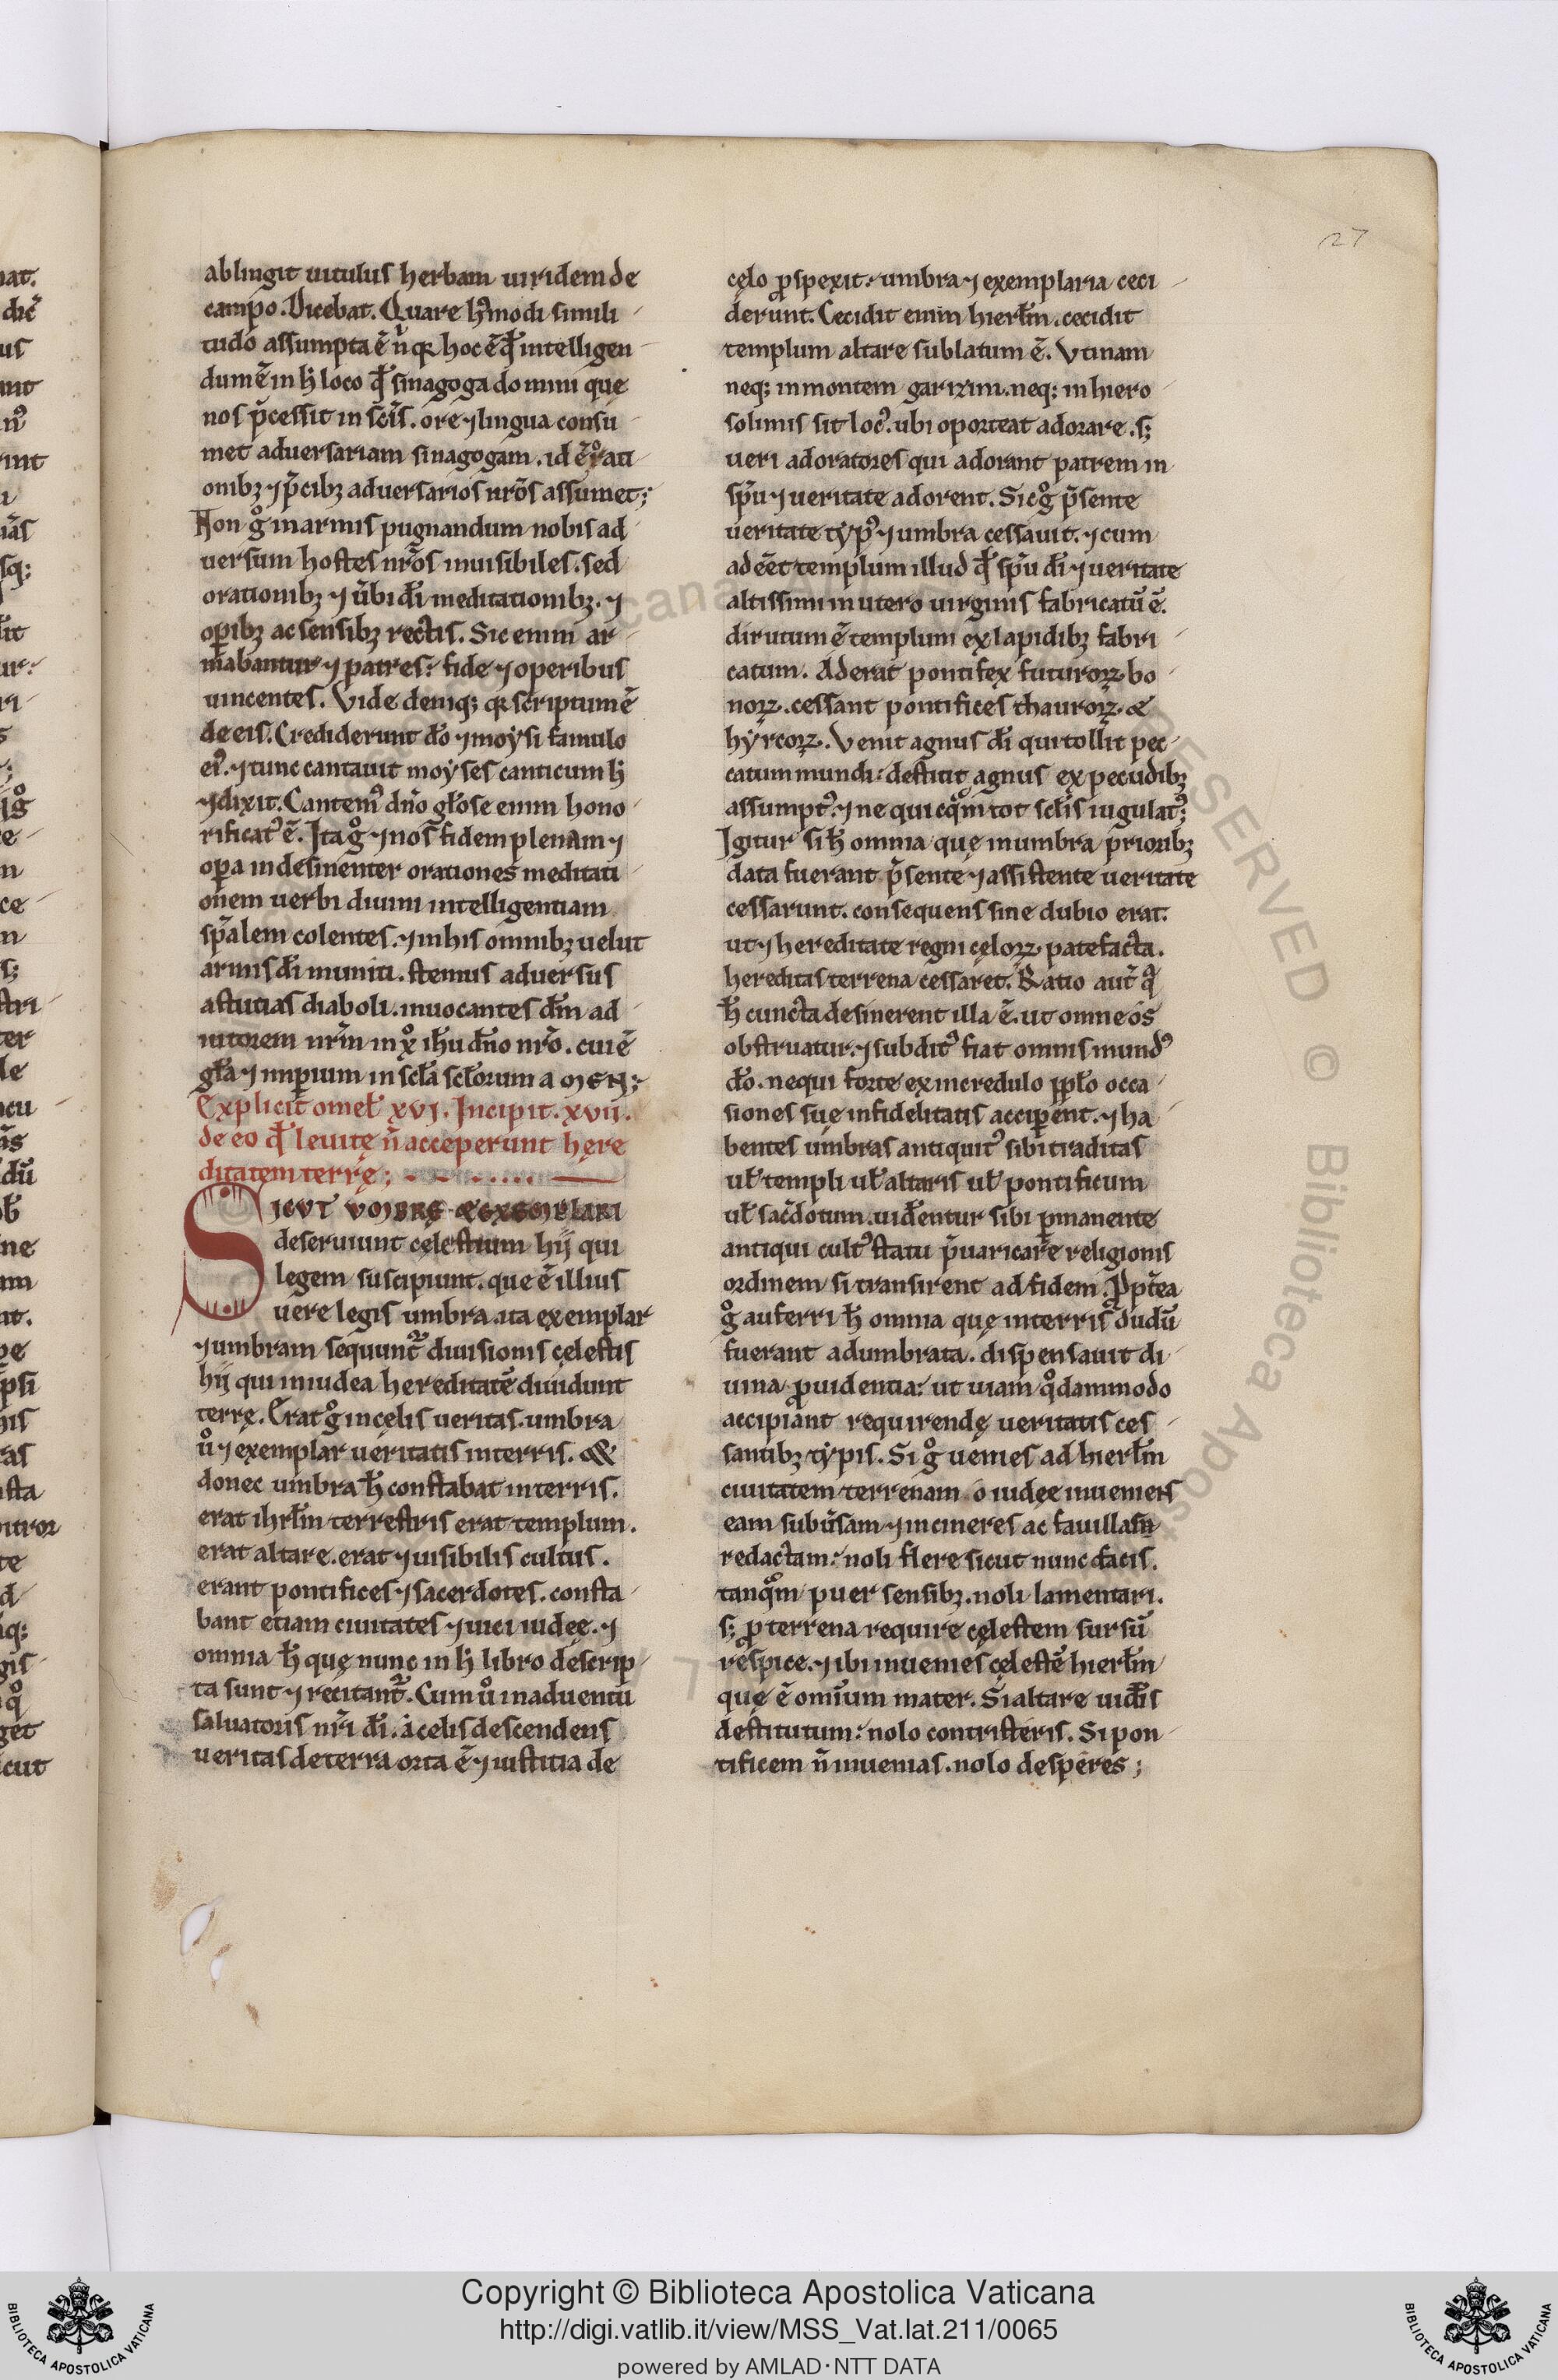 27
ablingit uitulus herbam uiridem de
campo. Dicebat. Quare hꝰmodi simili
tudo assumpta ē ń qꝛ hoc ē qđ intelligen
dum ē in ħ loco qđ sinagoga domini que
nos p̄cessit in scīs. ore ⁊ lingua consu
met aduersariam sinagogam. id ē orati
onibꝫ ⁊ p̄cibꝫ aduersarios nrōs assumet;
Non gͦ in armis pugnandum nobis ad
uersum hostes nrōs inuisibiles. sed
orationibꝫ ⁊ ūbi dī meditationibꝫ. ⁊
oꝑibꝫ ac sensibꝫ rectis. Sic enim ar
mabantur ⁊ patres: fide ⁊ operibus
uincentes. Vide deniqꝫ qꝛ scriptum ē
de eis. Crediderunt dō ⁊ moẏsi famulo
eiꝰ. ⁊ tunc cantauit moẏses canticum ħ
⁊ dixit. Cantemꝰ dnō glōse enim hono
rificatꝰ ē. Ita gͦ ⁊ nos fidem plenam ⁊
oꝑa indesinenter orationes meditati
onem uerbi diuini intelligentiam
sp̄alem colentes. ⁊ in his omnibꝫ uelut
armis dī muniti. stemus aduersus
astutias diaboli. inuocantes dm̄ ad
iutorem nrm̄ in xͦ ihū dnō nrō. cui ē
glā ⁊ imꝑium in sclā sclōrum a MEN:
Explicit omeł xvi. Incipit. xvii.
de eo qđ leuitę ñ acceperunt here
ditatem terrę;
SICVT VMBRE & EXEMPLARI
deseruiunt cęlestium hij qui
legem suscipiunt. que ē illius
uere legis umbra. ita exemplar
⁊ umbram sequunt᷑ diuisionis cęlestis
hij qui in iudea hereditatē diuidunt
terrę. Erat gͦ in cęlis ueritas. umbra
uͦ ⁊ exemplar ueritatis in terris. &
donec umbra ħ constabat in terris.
erat ihrłm terrestris erat templum.
erat altare. erat ⁊ uisibilis cultus.
erant pontifices ⁊ sacerdotes. consta
bant etiam ciuitates ⁊ uici iudee. ⁊
omnia ħ quę nunc in ħ libro descrip
ta sunt ⁊ recitant᷑. Cum uͦ in aduentu
saluatoris nrī dī. a celis descendens
ueritas de terra orta ē ⁊ iustitia de
cęlo ꝓspexit: umbra ⁊ exemplaria ceci
derunt. Cecidit enim hierłm. cecidit
templum altare sublatum ē. Vtinam
neqꝫ in montem garizim. neqꝫ in hiero
solimis sit locꝰ. ubi oporteat adorare. sꝫ
ueri adoratores qui adorant patrem in
sp̄u ⁊ ueritate adorent. Sic gͦ p̄sente
ueritate tẏpꝰ ⁊ umbra cessauit. ⁊ cum
adeēt templum illud qđ sp̄u dī ⁊ ueritate
altissimi in utero uirginis fabricatū ē.
dirutum ē templum ex lapidibꝫ fabri
catum. Aderat pontifex futuroꝝ bo
noꝝ. cessant pontifices thauroꝝ &
hẏrcoꝝ. Venit agnus dī qui tollit pec
catum mundi: destitit agnus ex pecudibꝫ
assumptꝰ. ⁊ ne quicqͣm tot sclīs iugulatꝰ;
Igitur si ħ omnia quę in umbra prioribꝫ
data fuerant p̄sente ⁊ assistente ueritate
cessarunt. consequens sine dubio erat.
ut ⁊ hereditate regni cęloꝝ patefacta.
hereditas terrena cessaret. Ratio aut̄ qͣ
ħ cuncta desinerent illa ē. ut omne os
obstruatur. ⁊ subditꝰ fiat omnis mundꝰ
dō. ne qui forte ex incredulo ppło occa
siones suę infidelitatis acciꝑent. ⁊ ha
bentes umbras antiquitꝰ sibi traditas
uł templi uł altaris uł pontificum
uł sac̄dotum. uidentur sibi ꝑmanente
antiqui cultꝰ statu p̄uaricare religionis
ordinem si transirent ad fidem. Ꝓpt̄ea
gͦ auferri ħ omnia quę in terris dudū
fuerant adumbrata. dispensauit di
uina ꝓuidentia: ut uiam qͦdammodo
accipiant requirendę ueritatis ces
santibꝫ tẏpis. Si gͦ uenies ad hierłm
ciuitatem terrenam o iudęe inueniens
eam subūsam ⁊ in cineres ac fauillam
redactam: noli flere sicut nunc facis.
tanqͣm puer sensibꝫ. noli lamentari.
sꝫ ꝓ terrena require cęlestem sursū
respice. ⁊ ibi inuenies cęlestē hierłm
quę ē omīum mater. Si altare uidēis
destitutum: nolo contristeris. Si pon
tificem ñ inuenias. nolo desperes;
Copyright © Biblioteca Apostolica Vaticana
http://digi.vatlib.it/view/MSS_Vat.lat.211/0065
powered by AMLAD·NTT DATA